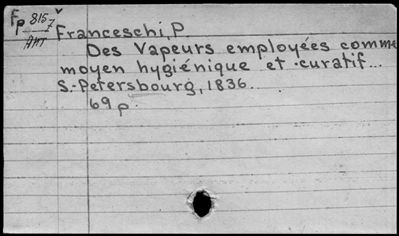 Fp 815/7 v
Ант
Franceschi, P.
Des Vapeurs employées comme
moyen hygiénique et curatif...
S.-Petersbourg, 1836.
69 p.